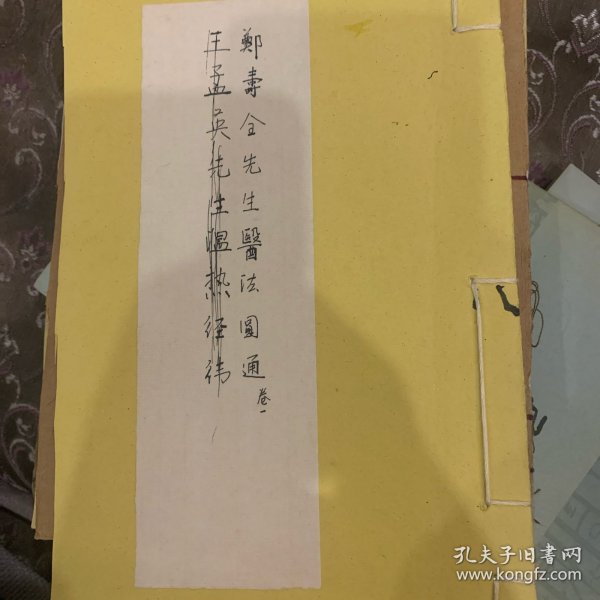 鄭壽全先生醫法圓通卷一
王孟英先生温热经纬
孔夫子旧书网
www.kongfz.com